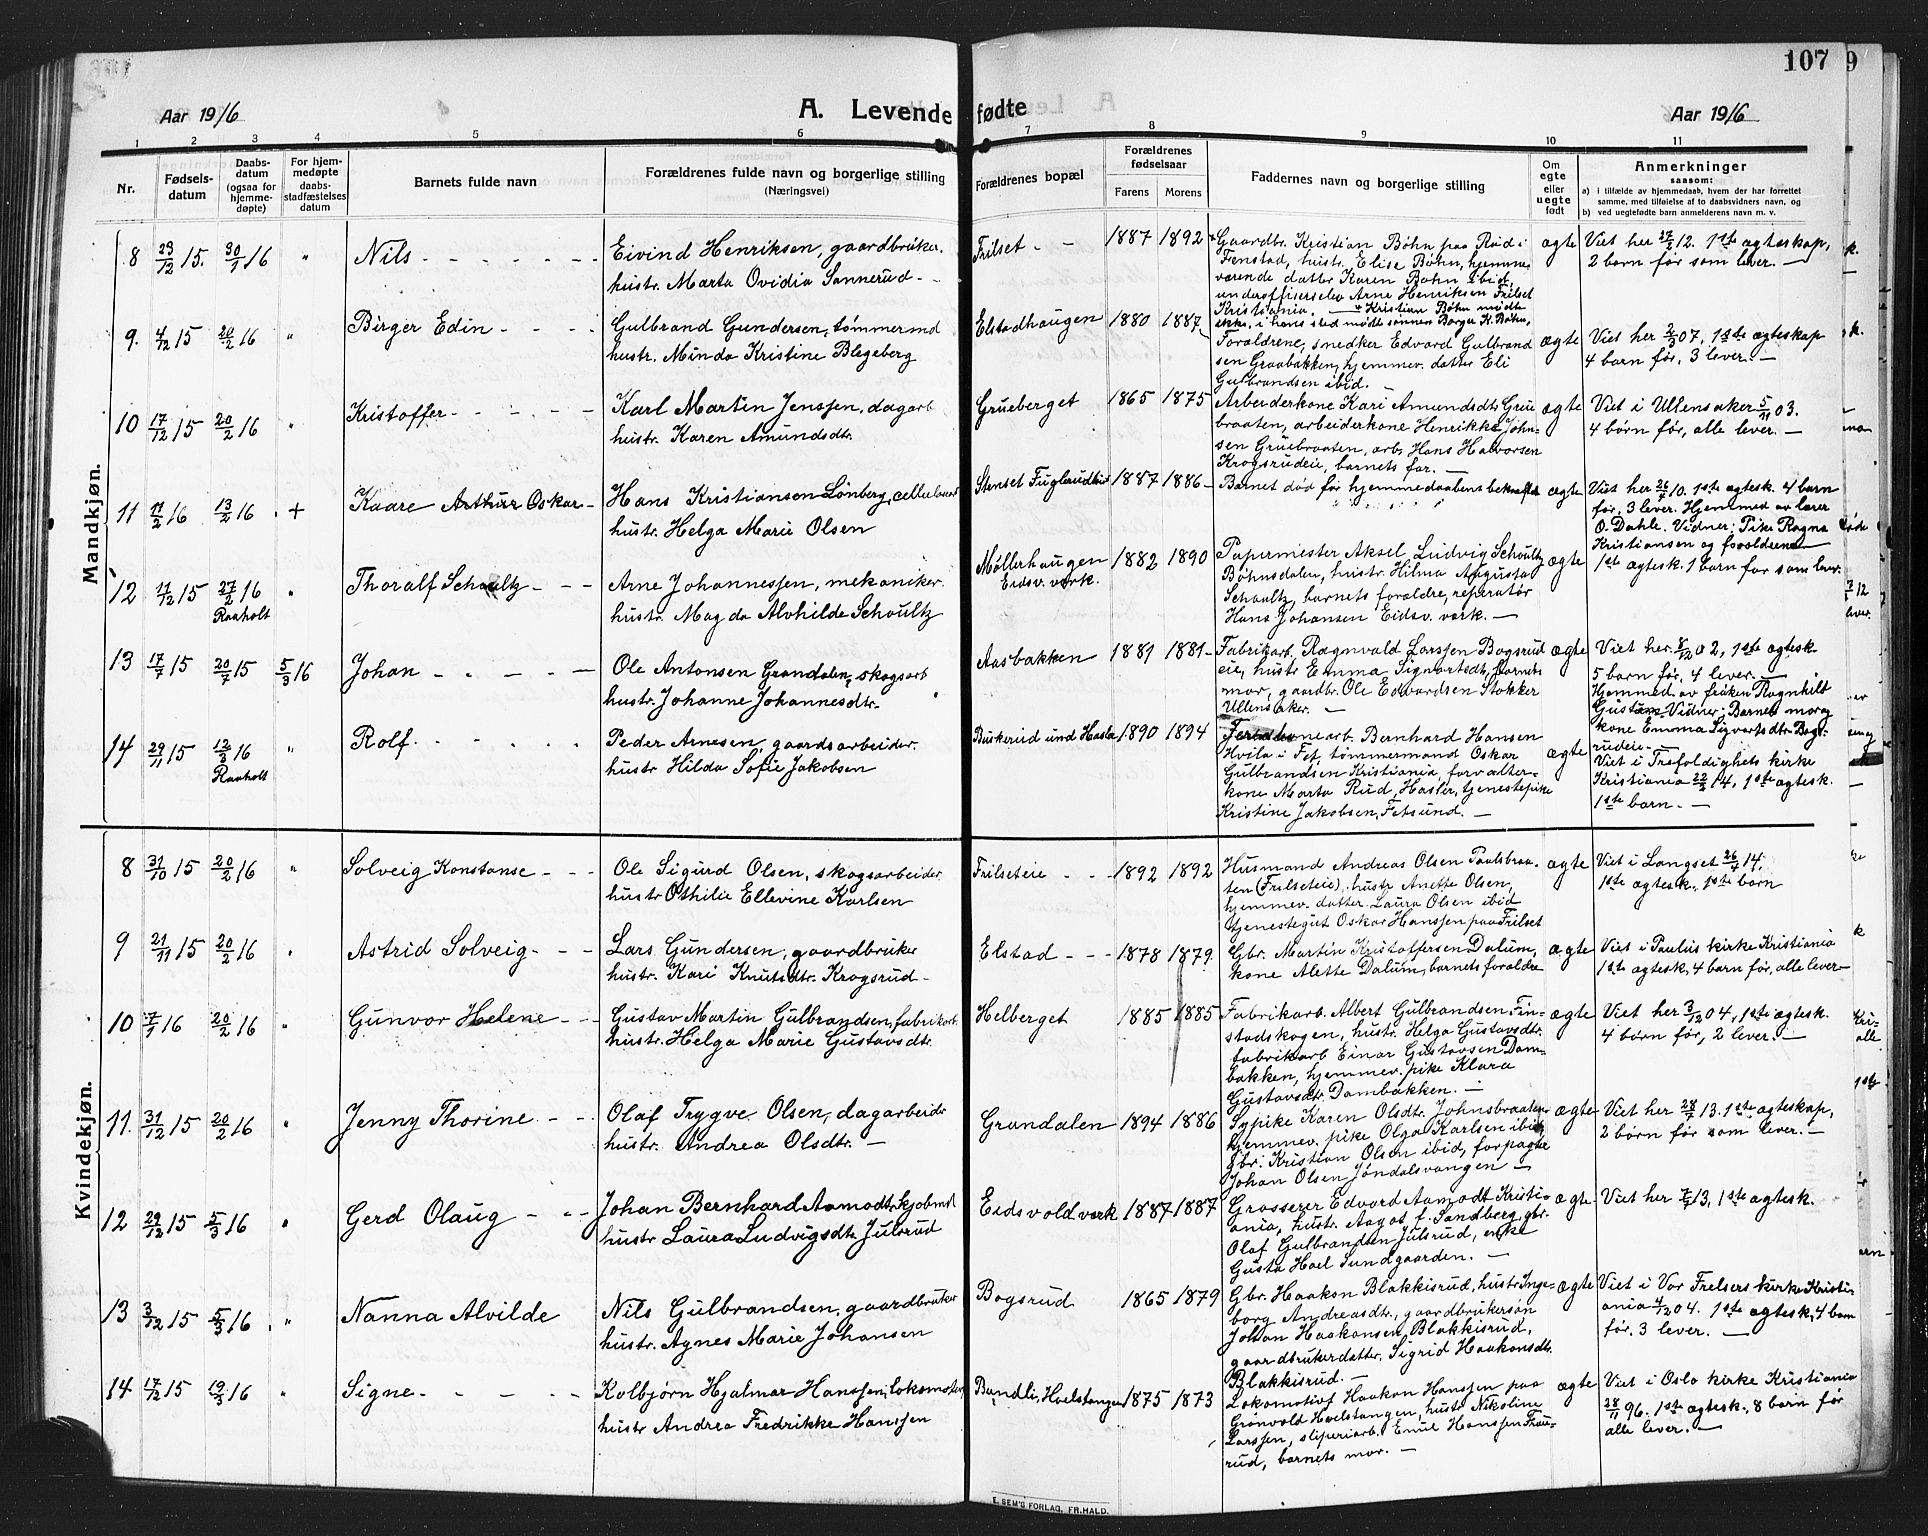 107
9
Aar 1916
A. Levende fødte
Aar 1916
1 2 3 4 5 6 7 8 9 10 11
Nr.
Fødsels-
datum
Daabs-
datum
(ogsaa for
hjemme-
døpte)
For hjem-
medøpte
daabs-
stadfæstelses
datum
Barnets fulde navn
Forældrenes fulde navn og borgerlige stilling
(Næringsvei)
Forældrenes bopæl
Forældrenes
fødselsaar
Farens Morens
Faddernes navn og borgerlige stilling
Om
egte
eller
uegte
født
Anmerkninger
saasom:
a) i tilfælde av hjemmedaab, hvem der har forrettet
samme, med tilføielse af to daabsvidners navn, og
b) ved uegtefødte barn anmelderens navn m. v.
Mandkjøn.
8 29/12 15. 30/1 16 " Nils - - - - - -
Eivind Henriksen, gaardbruker.
hustr. Marta Ovidia Sannerud -
Frilset - - 1887 1892
Gaardbr. Kristian Bøhn paa Rød i
Fenstad, hustr. Elise Bøhn, hjemme-
værende datter Karen Bøhn ibid,
underofficerselev Arne Henriksen Frilset
Kristiania. + Kristian Bøhn mødte
ikke, i hans sted mødte sønnen Borger K. Bøhn,
ægte
Viet her 27/2 12. 1ste ægteskap,
2 barn før som lever. -
9. 4/12 15 20/2 16 " Birger Edin - - - -
Gulbrand Gundersen, tømmermd
hustr. Minda Kristine Blegeberg
Elstadhaugen 1880 1887
Forældrene, snedker Edvard Gulbrand
sen Graabakken, hjemmev. datter Eli
Gulbrandsen ibid.
ægte
Viet her 2/3 07, 1ste ægteskap
4 barn før, 3 lever. -
10 17/12 15 20/2 16 " Kristoffer - - - -
Karl Martin Jenssen, dagarb
hustr. Karen Amundsdtr.
Grueberget 1865 1875
Arbeiderkone Kari Amundsdtr Grue
braaten, arbeiderkone Henrikke John-
sen Gruebraaten, arb. Hans Halvorsen
Krogsrudeie, barnets far. -
ægte
Viet i Ullensaker 5/11 03.
4 børn før, alle lever. -
11 11/2 16 13/2 16 . + Kaare Arthur Oskar -
Hans Kristiansen Lønberg, cellulosearb
hustr. Helga Marie Olsen
Stenset Fuglerudhus 1887 1886 -
Barnet død før hjemmedaabens bekræftelse
ægte
Viet her 26/7 10. 1ste ægtesk. 4 barn
før, 3 lever. Hjemmed av lærer
O. Dahle. Vidner: Pike Ragna
Kristiansen og forældrene -
12 17/12 15 27/2 16 " Thoralf Schoultz - - -
Raaholt
Arne Johannessen, mekaniker.
hustr. Magda Alvhilde Schoultz
Møllerhaugen
Eidsv. verk. 1882 1890
Papirmester Aksel Ludvig Schoultz
Bøhnsdalen, hustr. Hilma Augusta
Schoultz, barnets forældre, reparatør
Hans Johansen Eidsv. verk. -
ægte
1ste ægtesk. 1 barn før som lever.
13 17/7 15 20/7 15 5/3 16 Johan - - - - -
Ole Antonsen Grandalen, skogsarb
hustr. Johanne Johannesdtr.
Aasbakken 1881 1881 -
Fabrikarb. Ragnvald Larssen Bogsrud
eie, hustr. Emma Sigvartsdtr, barnets
mor, gaardbr. Ole Edvardsen Stokker
Ullensaker. -
ægte
Viet her 8/12 02, 1ste ægtesk
5 barn før, 4 lever. -
Hjemmed. av frøken Ragnhild
Gustam Vidner: Barnets mor og
kone Emma Sigvartsdtr. Bogs-
rudeie -
14 29/11 15 12/3 16 " Rolf - - - - -
Raaholt
Peder Arnesen, gaardsarbeider.
hustr Hilda Sofie Jakobsen
Buskerud und Hasler 1890 1894
Bernhard Hansen
Hvila i Fet, tømmermand Oskar
Gulbrandsen Kristiania, forvalter-
kone Marta Rud, Hasler, tjenestepike
Kristine Jakobsen, Fetsund. -
ægte
Viet i Trefoldighets kirke
Kristiania 22/2 14, 1ste ægtesk.
1ste barn. -
Kvindekjøn.
8 31/10 15 20/2 16 " Solveig Konstanse - - -
Ole Sigurd Olsen, skogsarbeider
hustr Othilie Ellevine Karlsen
Frilseteie - - - 1892 1892
Husmand Andreas Olsen Paulsbraa-
ten (Frilseteie), hustr Anette Olsen,
hjemmev. datter Laura Olsen ibid
tjenestegut Oskar Hanssen paa Frilset
ægte
Viet i Langset 26/4 14.
1ste ægtesk., 1ste barn
9 21/11 15 20/2 16 " Astrid Solveig - - -
Lars Gundersen, gaardbruker
hustr. Kari Knutsdtr. Krogsrud -
Elstad - - - 1878 1879
Gbr. Martin Kristoffersen Dalum,
kone Alette Dalum, barnets forældre
ægte
Viet i Paulus kirke Kristiania
1ste ægtesk, 4 barn før, alle lever -
10 7/1 16 20/2 16 " Gunvor Helene - -
Gustav Martin Gulbrandsen, fabrikarb.
hustr. Helga Marie Gustavsdtr.
Helberget 1885 1885
Fabrikarb. Albert Gulbrandsen Fin-
stadskogen, hustr. Helga Gustavsdtr.
fabrikarb Einar Gustavsen Dam-
bakken, hjemmev. pike Klara
Gustavsdtr. Dambakken. -
ægte
Viet her 3/12 04, 1ste ægtesk.
4 børn før, 2 lever. -
11. 31/12 15 20/2 16 " Jenny Thorine - -
Olaf Trygve Olsen, dagarbeider
hustr. Andrea Olsdtr. -
Grandalen 1894 1886
Sypike Karen Olsdtr. Johnsbraaten
hjemmev. pike Olga Karlsen ibid,
gbr. Kristian Olsen ibid, forpagter
Johan Olsen Jøndalsvangen -
ægte
Viet her 28/7 13. 1ste ægteskap,
2 børn før som lever. -
12 29/12 15 5/3 16 " Gerd Olaug - - -
Johan Bernhard Aamodt, kjøbmd
hustr Laura Ludvigsdtr. Julsrud
Eidsvold verk 1887 1887
Grosserer Edvard Aamodt Kristi-
ania, hustr. Aagot f. Sandberg, gbr.
Olaf Gulbrandsen Julsrud, enke
Gusta Hoel Sundgaarden. -
ægte
Viet her 7/5 13, 1ste ægtesk.
13 3/12 15 5/3 16 . " Nanna Alvilde
Nils Gulbrandsen, gaardbruker
hustr. Agnes Marie Johansen
Bogsrud 1865 1879
Gbr. Haakon Blakkisrud, hustr Inge-
borg Andreasdtr, gaardbrukersøn
Johan Haakonsen Blakkisrud,
gaardbrukerdatter, Sigrid Haakonsdtr.
Blakkisrud. -
ægte
Viet i Vor Frelsers kirke Kristi-
ania 4/2 04. 1ste ægtesk, 4 barn
før. 3 lever. -
14 17/12 15 19/3 16 " Signe - - - -
Kolbjørn Hjalmar Hanssen, lokomotivf
hustr Andrea Fredrikke Hanssen
Bundli, Hoelstangen 1875 1873
Lokomotivf Haakon Hanssen paa
Grønvold Hoelstangen, hustr Nikoline
Larssen, sliperiarb. Emil Hanssen Trau-
rud, barnets mor. -
ægte
Viet i Oslo kirke Kristiania
28/11 96. 1ste ægtesk., 8 barn før
alle lever. -
E. SEM'S FORLAG, FR.HALD.